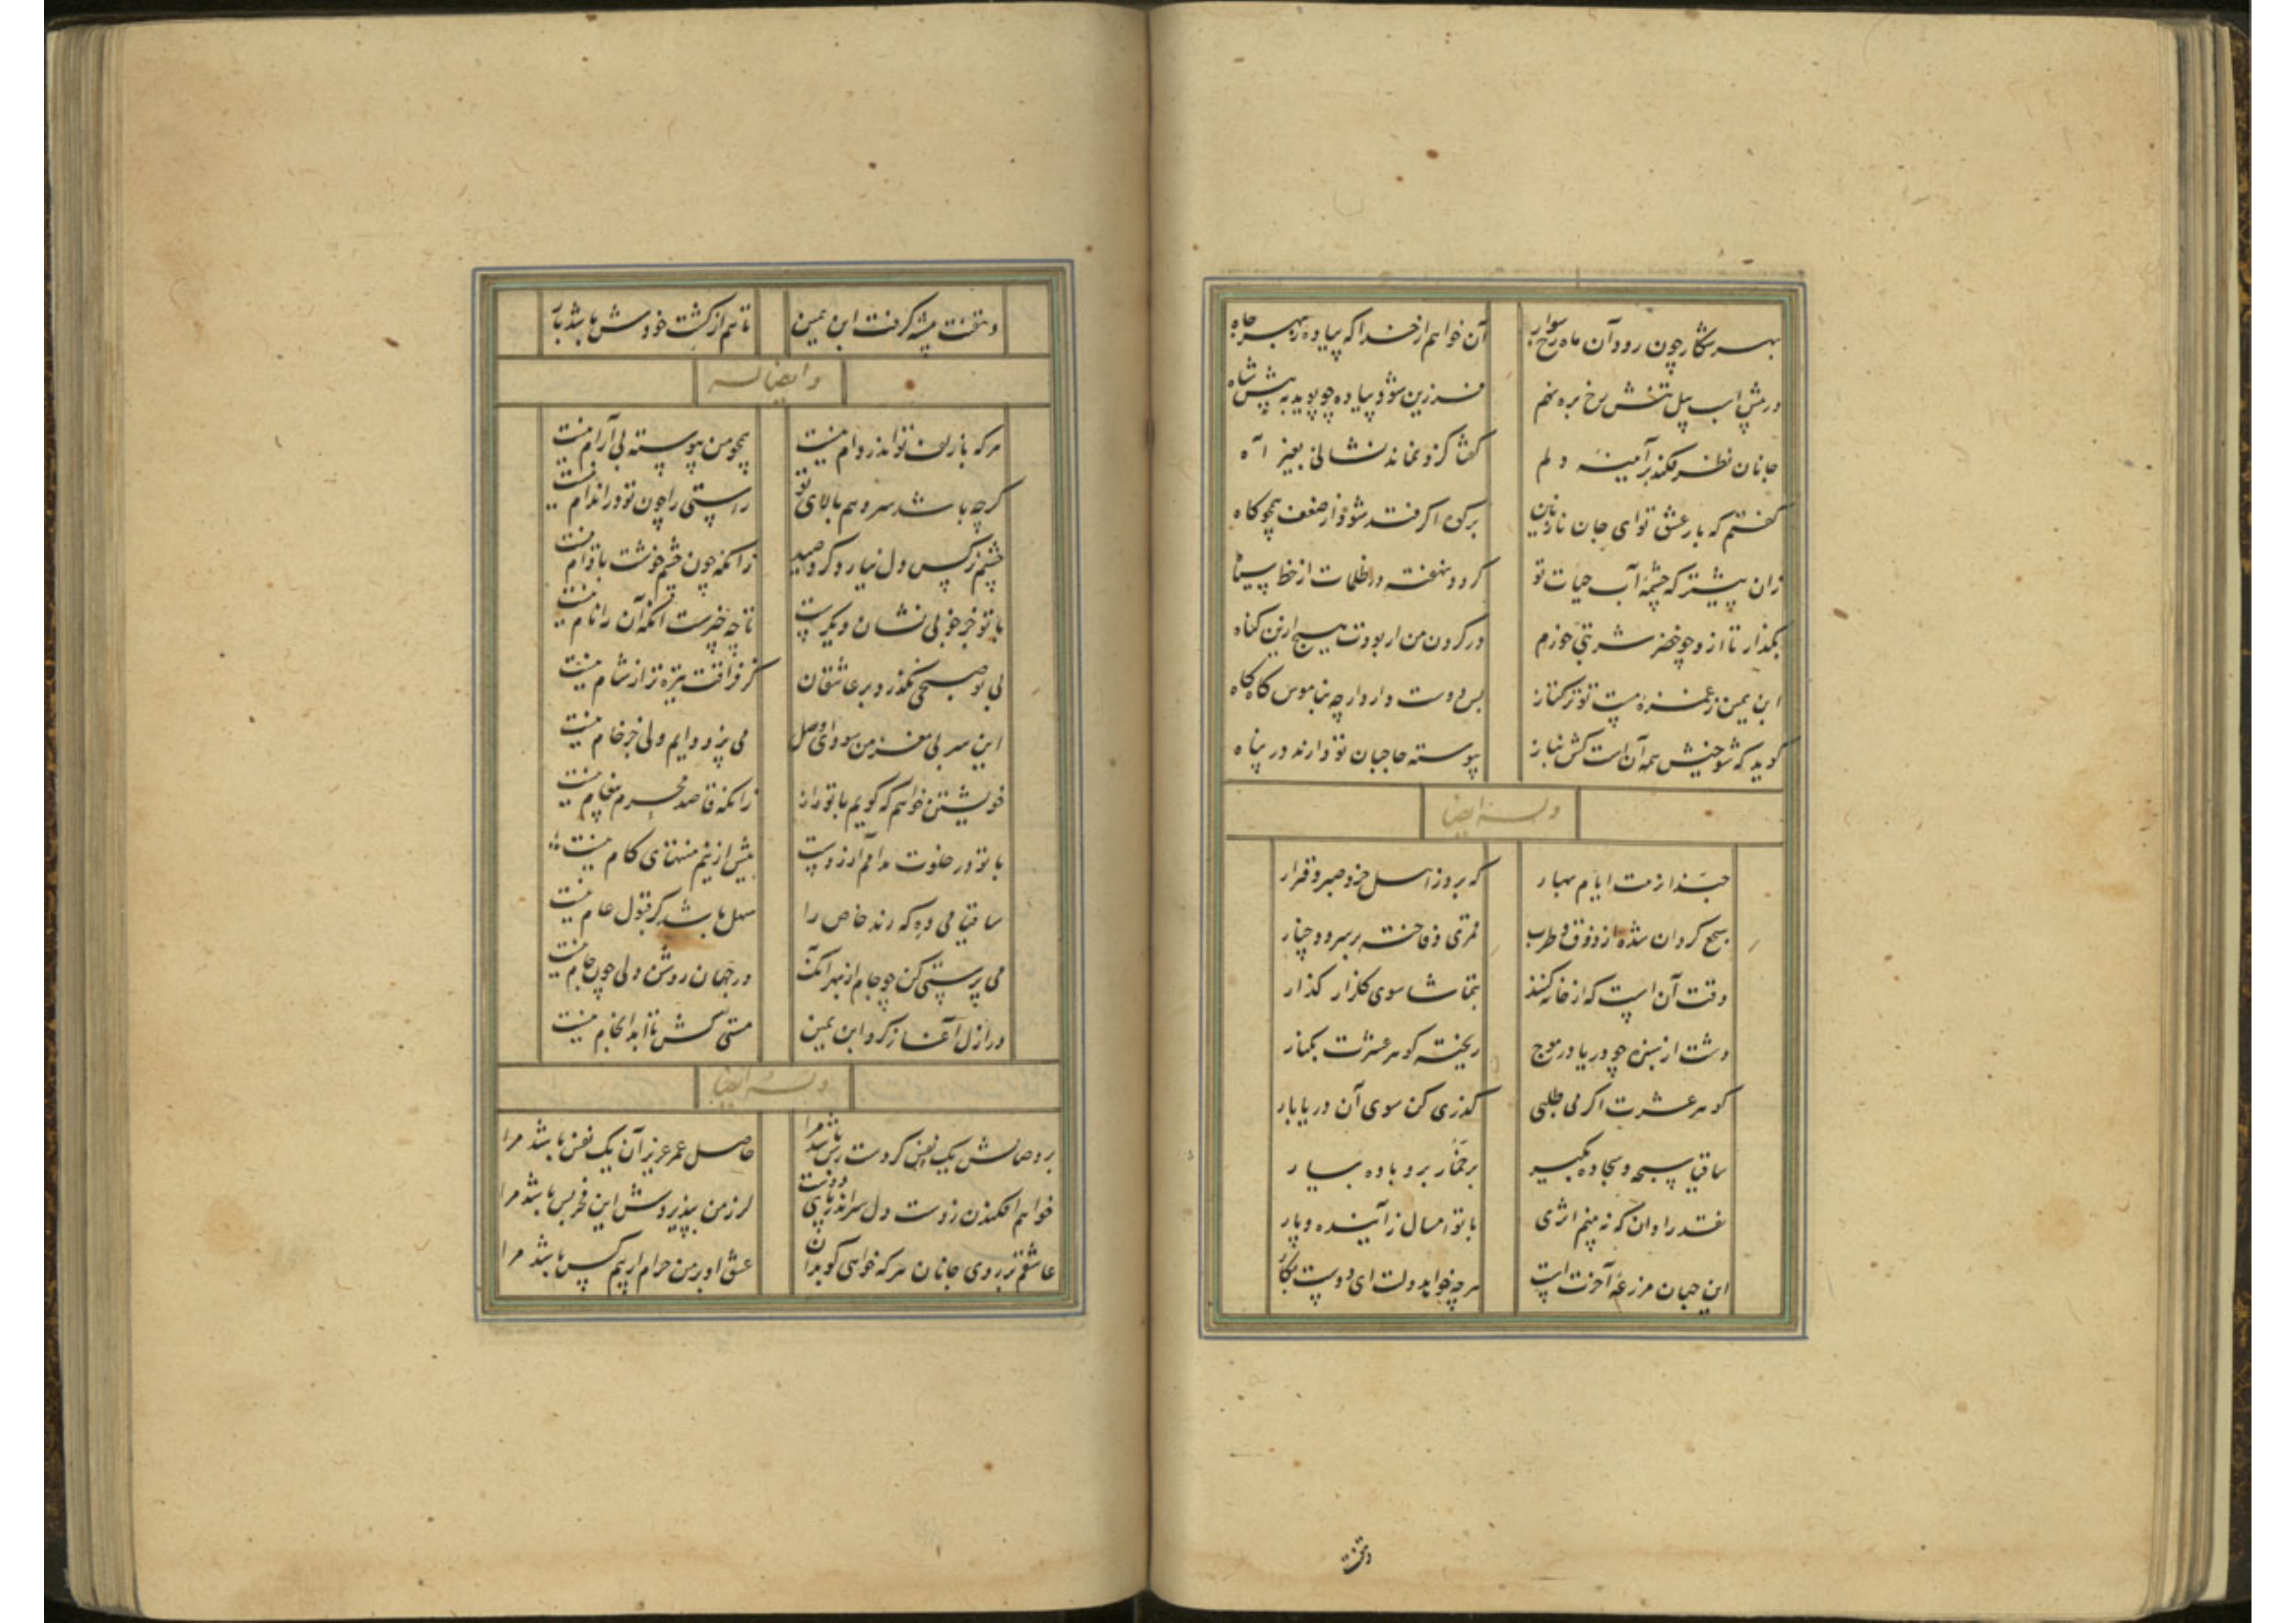 بهر شکار چون رود آن ماه رخ سوار آن خواهم از خدا که پیاده ز بهر جاه
در پیش اسب پیل تنش رخ بره نهم فرزین شود پیاده چو پوید به پیش شاه
جانان نظر فکند بر آمینه دلم کفتا کزو نماند نشانی بغیر آه
کفتم که بار عشق تو ای جان نازنین بر که اکر فتد شود از ضعف همچو کاه
زان پیشتر که چشمه آب حیات تو کردد نهفته در ظلمات از خط سیاه
بکذار تا ازو چو خضر شربتی خورم در کردن من ار بودت هیچ ازین کناه
ابن یمین ز غمزه مست تو ترکتاز بس دوست دارد ار چه بناموس کاه کاه
کوید که شوخیش همه آن است کش بناز پیوسته حاجبان تو دارند در پناه
وله ایضا
حبذا زمت ایام بهار که برد از اسل خرد صبر و قرار
سجع کردان شده از ذوق و طرب قمری و فاخته بر سرو و چنار
وقت آن است که از خانه کنند بتماشا سوی کلزار کذار
دشت از سبزه چو دریا در موج ریخته کوهر عشرت بکنار
کوهر عشرت اکر می طلبی کذری کن سوی آن دریا بار
ساقیا سبحه و سجاده بکیر بر خمار برو باده بیار
نقد را دان که نه بینم اثری با تو امسال ز آینده و پار
این جهان مزرعه آخرت است هر چه خواهد دلت ای دوست بکار
وتخت
وتخت پیشه کرفت ابن یمین تا هم از کشت خودش باشد بار
وایضا له
هر که با زلف تو اندر دام نیست همچو من پیوسته بی آرام نیست
کر چه باشد سرو هم بالای تو راستی را چون تو در اندام نیست
چشم نرکس دل نیارد کرد صید زانکه چون چشم خوشت بادام نیست
با تو جز خوبی نشان دیکرست تا چه چیزست آنکه آن را نام نیست
بی تو صبحی نکذرد بر عاشقان کز فراقت تیره تر از شام نیست
این سر بی مغز من سودای وصل می پزد دایم ولی جز خام نیست
خویشتن خواهم که کویم با تو راز زانکه قاصد محرم پیغام نیست
با تو در خلوت مدامم آرزوست بیش ازینم منتهای کام نیست
ساقیا می ده که رند خاص را سهل باشد کر قبول عام نیست
می پرستی کن چو جام از بهر آنک در جهان روشن دلی چون جام نیست
در ازل آغاز کرد ابن یمین مستی کش تا ابد انجام نیست
وله ایضا
بر وصالش یک نفس کر دست رس باشد مرا حاصل عمر عزیز آن یک نفس باشد مرا
خواهم افکندن ز دست دل سر اندر پای دوست کر ز من بپذیردش این فخر بس باشد مرا
عاشقم بر روی جانان هر که خواهی کو بدان عشق او بر من حرام ار بیم کس باشد مرا